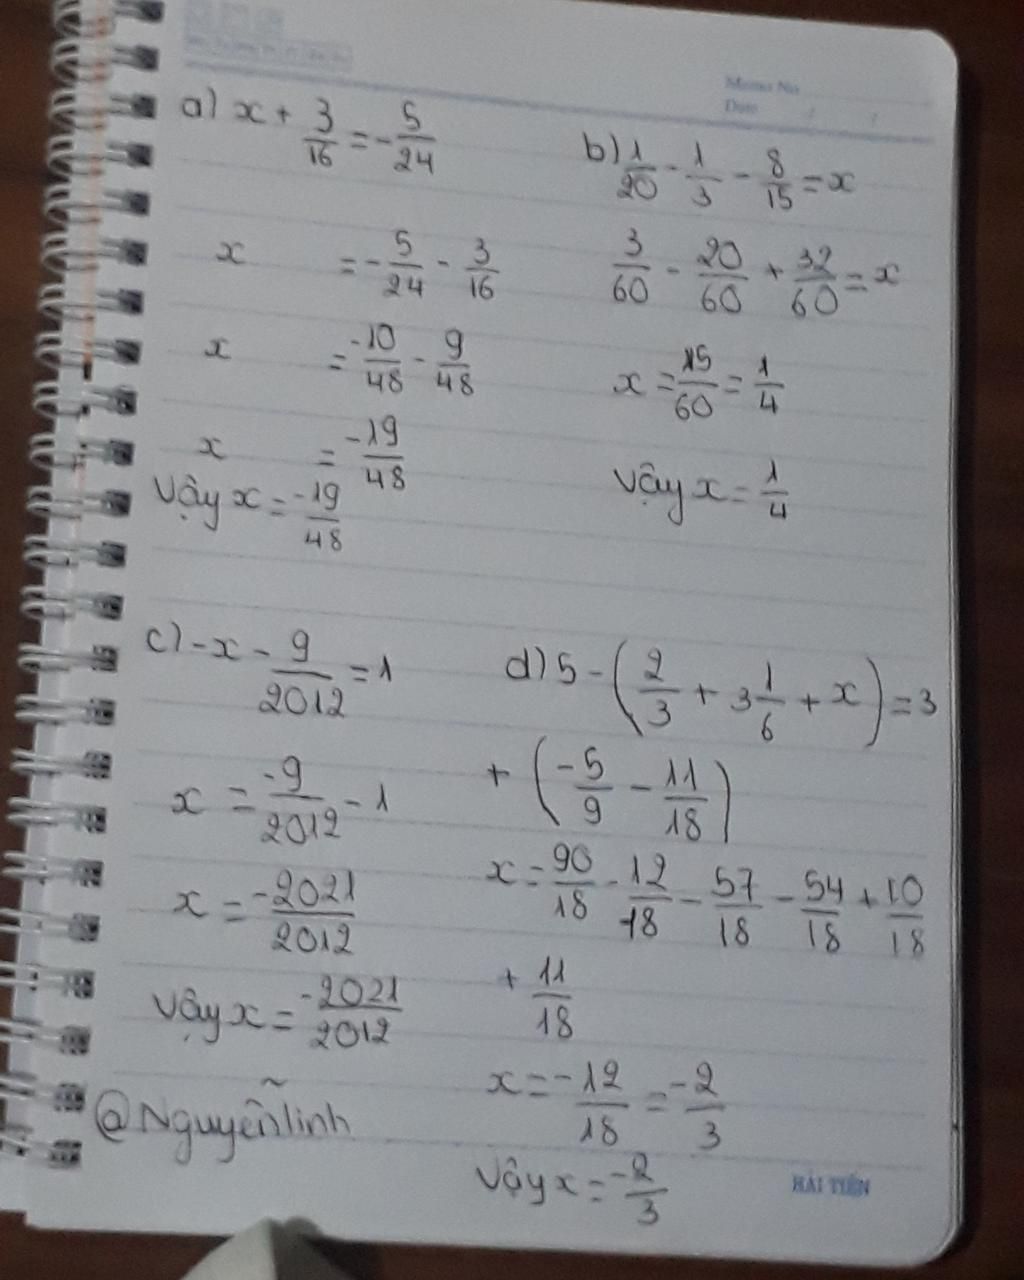 Memo No
Date / /
a) x + 3/16 = - 5/24
x = - 5/24 - 3/16
x = -10/48 - 9/48
x = -19/48
Vậy x = -19/48
b) 1/20 - 1/3 - 8/15 = x
3/60 - 20/60 + 32/60 = x
x = 15/60 = 1/4
Vậy x = 1/4
c) -x - 9/2012 = 1
x = -9/2012 - 1
x = -2021/2012
Vậy x = -2021/2012
@Nguyễnlinh
d) 5 - (2/3 + 3 1/6 + x) = 3
+ (-5/9 - 11/18)
x = 90/18 - 12/18 - 57/18 - 54/18 + 10/18
+ 11/18
x = -12/18 = -2/3
Vậy x = -2/3
HẢI TIẾN